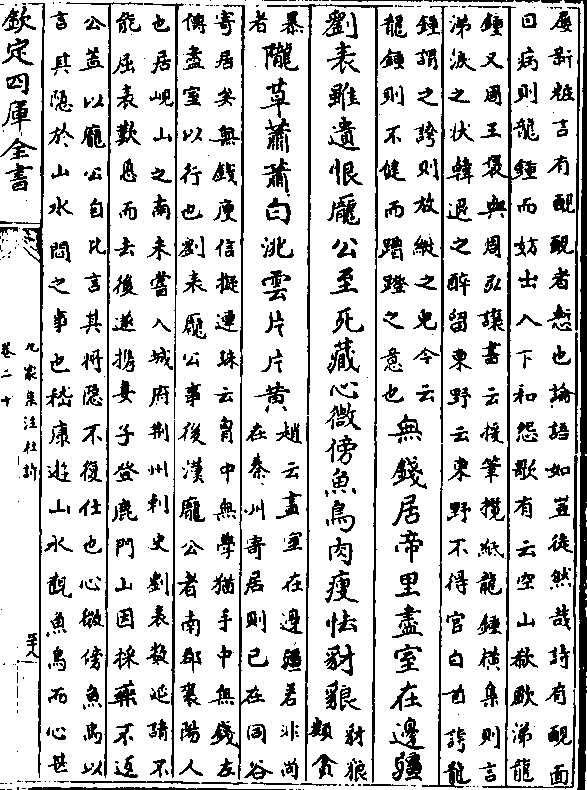 屢新粧言有靦靦者慙也論語如豈徒然哉詩有靦面
曰病則龍鍾而妨士人下和怨歌有云空山欷歔涕龍
鍾又周王褒與周弘讓書云援筆攬紙龍鍾横集則言
涕泪之狀韓退之醉留東野云東野不得官白首誇龍
鍾謂之誇則放縱之皃今云
龍鍾則不健而蹭蹬之意也
無錢居帝里盡室在邊疆
劉表雖遺恨龐公至死藏心微傍魚鳥肉瘦怯豺狼
豺狼
類貪
暴
者
隴草蕭蕭白洮雲片片黄
趙云盡室在邊疆若非尚
在秦州寄居則已在同谷
寄居矣無錢庾信擬連珠云胷中無學猶手中無錢左
傳盡室以行也劉表龐公事後漢龐公者南郡襄陽人
也居峴山之南未嘗入城府荆州刺史劉表數延請不
能屈表歎息而去後遂攜妻子登鹿門山因採藥不返
公葢以龐公自比言其終隱不復仕也心微傍魚鳥以
言其隱於山水間之事也嵇康遊山水觀魚鳥而心甚
欽定四庫全書
九家集注杜詩
卷二十